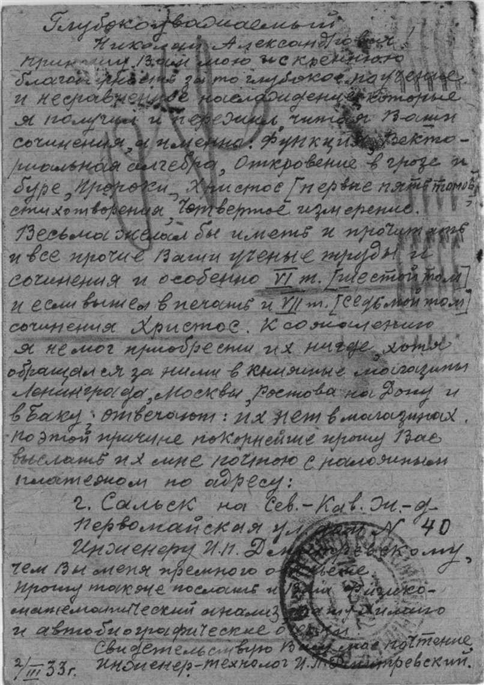 Глубокоуважаемый
Николай Александрович!
Приношу Вам мою искреннюю
благодарность за то глубокое поучение
и несравненное наслаждение, которые
я получил и пережил, читая Ваши
сочинения, а именно: Функция, Векто-
риальная алгебра, Откровение в грозе и
буре, Пророки, Христос [первые пять томов],
стихотворения, Четвертое измерение.
Весьма желал бы иметь и прочитать
и все прочие Ваши ученые труды и
сочинения и особенно VI т. [шестой том]
и если вышел в печать и VII т. [седьмой том]
сочинения Христос. К сожалению
я не мог приобрести их нигде, хотя
обращался за ними в книжные магазины
Ленинграда, Москвы, Ростова на Дону и
в Баку: отвечают: их нет в магазинах.
по этой причине покорнейше прошу Вас
выслать их мне почтою с наложным
платежом по адресу:
г. Сальск на Сев.-Кав. ж.-д.
Первомайская улица N 40
Инженеру И.П.
чем Вы меня премного
Прошу также послать и Физико-
математический анализ, Химию
и автобиографические
Свидетельствую Вам мое почтение
2/III 33 г. Инженер-технолог И.